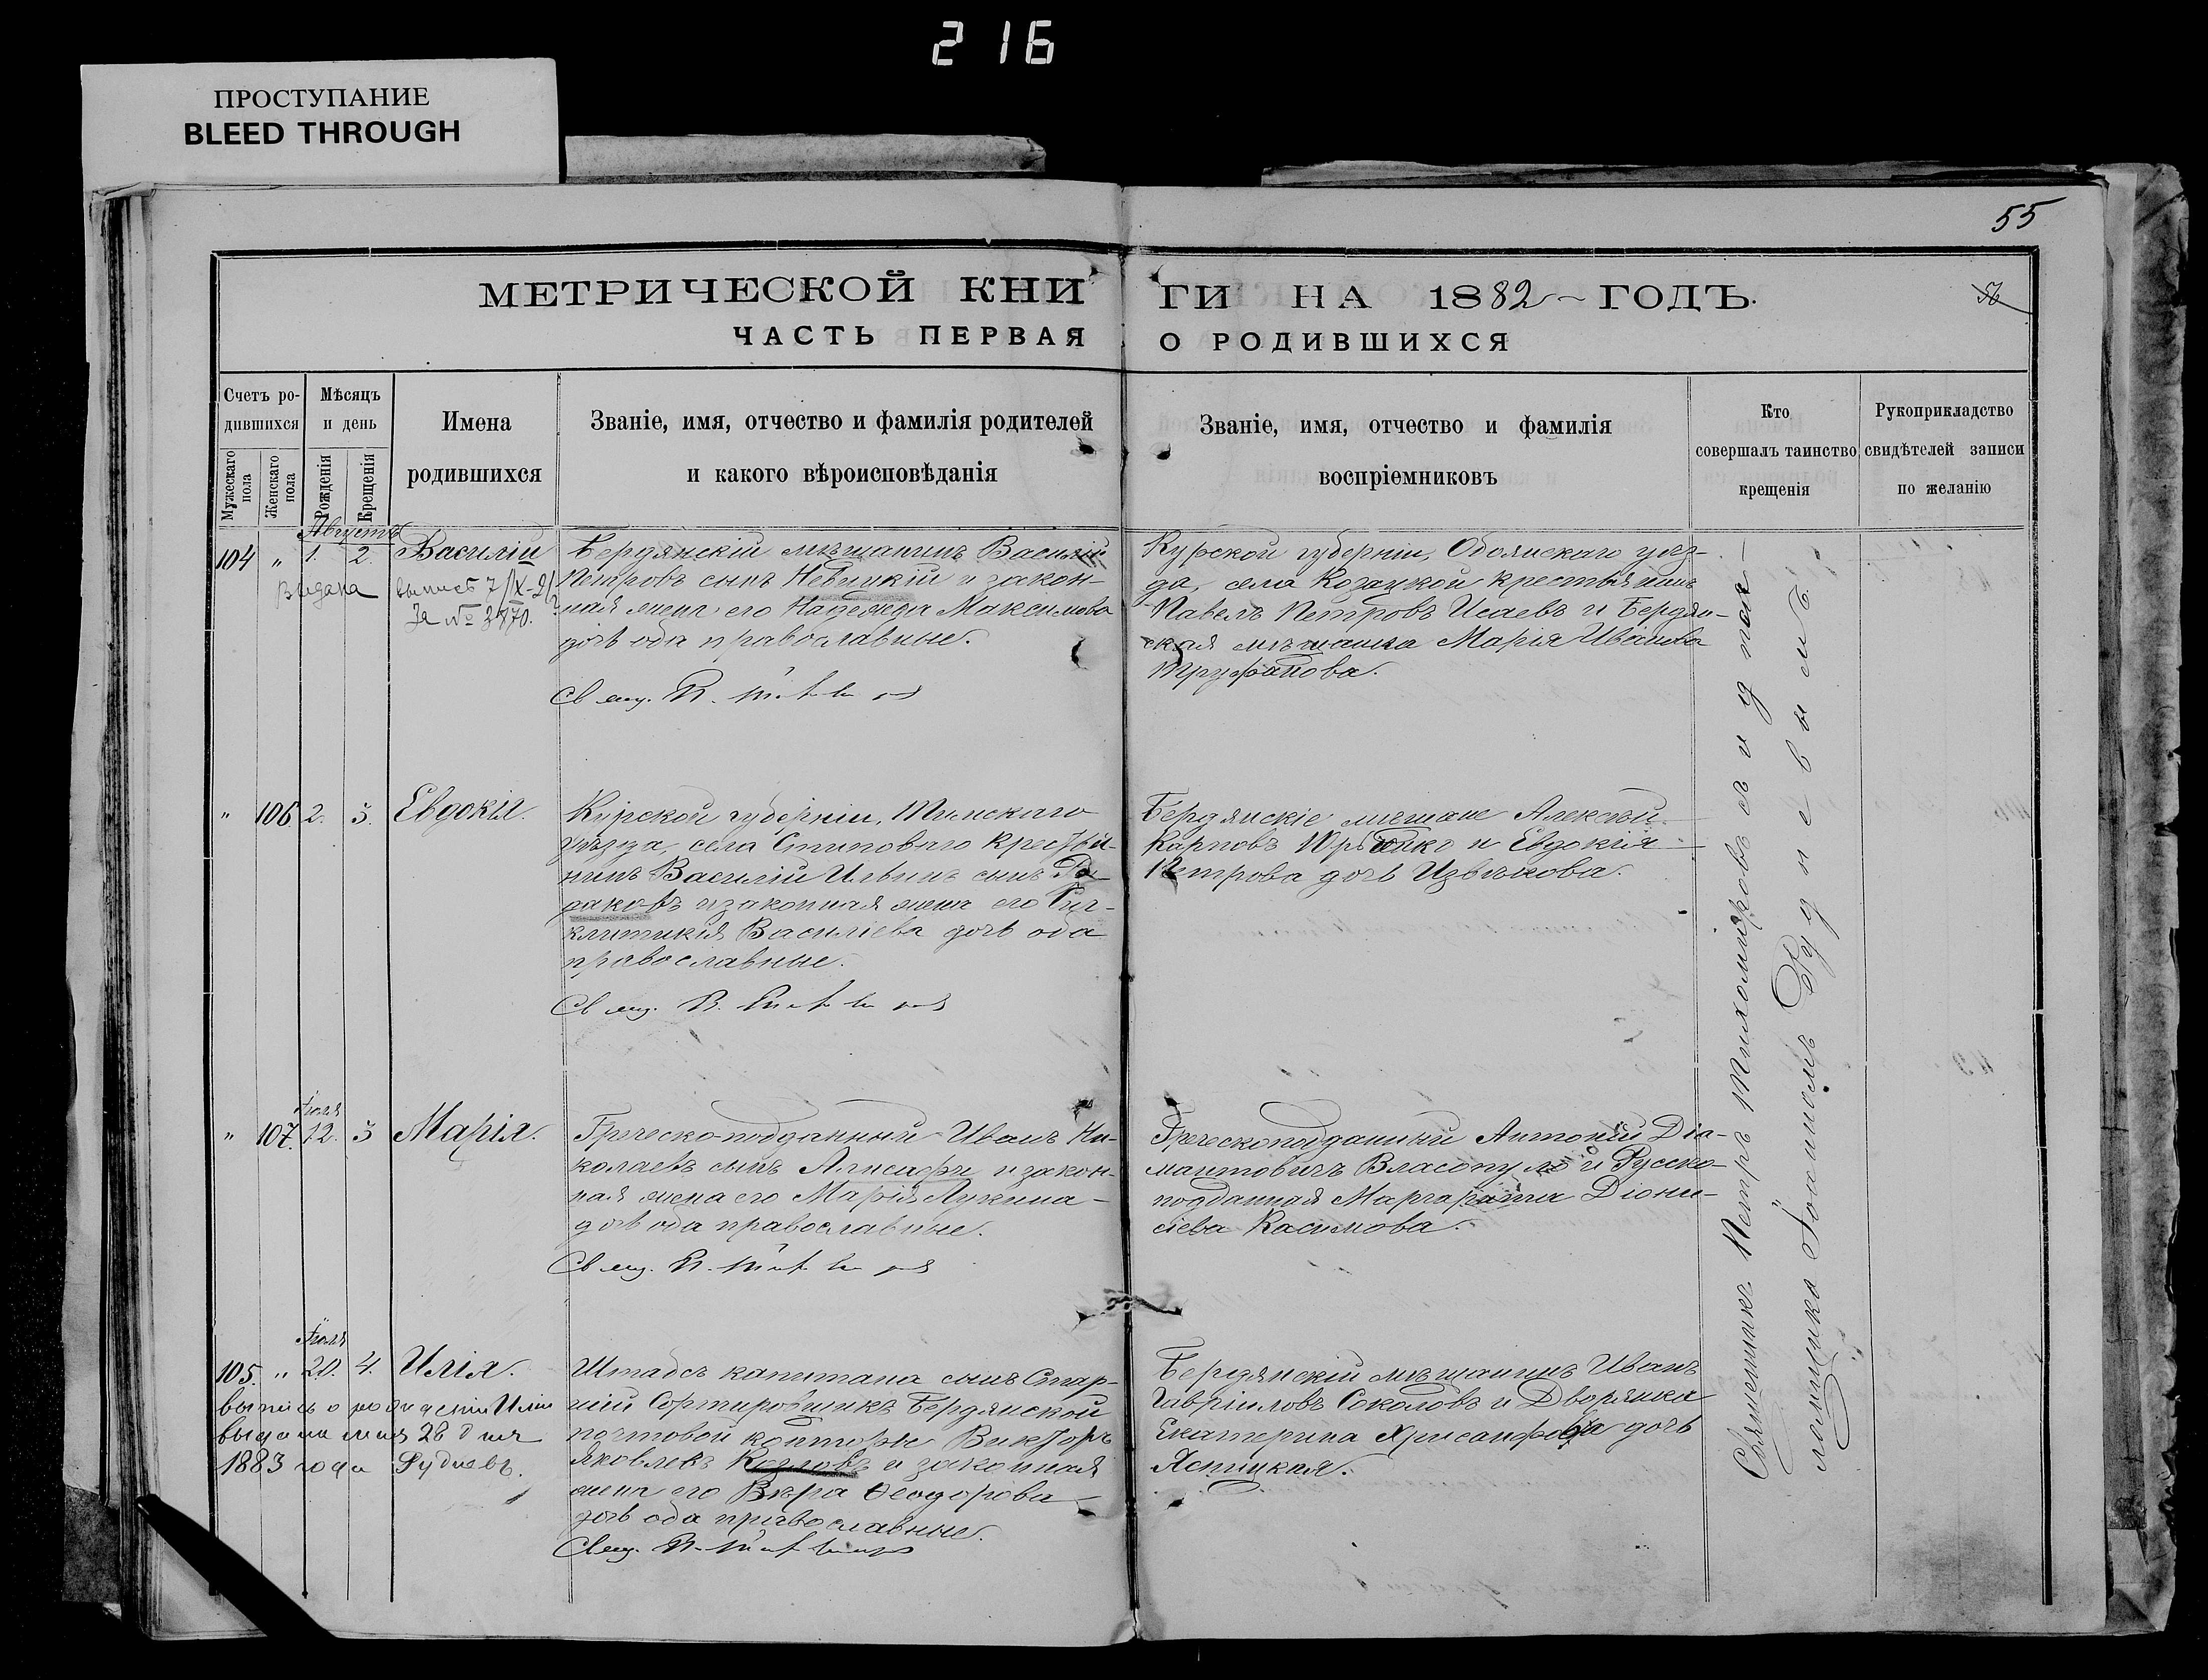 216
ПРОСТУПАНИЕ
BLEED THROUGH
55
МЕТРИЧЕСКОЙ КНИГИ НА 1882 ГОДЪ.
56
ЧАСТЬ ПЕРВАЯ О РОДИВШИХСЯ
Счетъ ро-
дившихся
Мужескаго пола
Женскаго пола
Мѣсяцъ
и день
Рожденія
Крещенія
Имена
родившихся
Званіе, имя, отчество и фамилія родителей
и какого вѣроисповѣданія
Званіе, имя, отчество и фамилія
воспріемниковъ
Кто
совершалъ таинство
крещенія
Рукоприкладство
свидѣтелей записи
по желанію
Августъ
104 " 1. 2. Василій
Выдана выпись 7/IX-21
За № 3870.
Бердянскій мѣщанинъ Василій
Петровъ сынъ Невицкій и закон-
ная жена его Надежда Максимова
дочь оба православные.
Свящ. П.
Курской губерніи, Обоянскаго уѣз-
да, села Козацкой крестьянинъ
Павелъ Петровъ Исаевъ и Бердян-
ская мѣщанка Марія Иванова
Труфанова.
" 106. 2. 3. Евдокія.
Курской губерніи, Тимскаго
уѣзда, села Становаго крестья-
нинъ Василій Ильинъ сынъ
даковъ и законная жена его Син-
клитикія Василіева дочь оба
православные.
Свящ. П.
Бердянскіе мѣщане Алексѣй
Карповъ и Евдокія
Петрова дочь Извѣкова.
Іюля
" 107. 12. 3 Марія.
Греческоподданный Иванъ Ни-
колаевъ сынъ и закон-
ная жена его Марія Лукина
дочь оба православные.
Свящ. П.
Греческоподданный Антоній Діа-
мантовичъ Власопуло и Русско-
подданная Маргарита Діони-
сіева Касимова.
Іюля
105. " 20. 4. Илія.
выпись о рожденіи Иліи
выдана мая 28 дня
1883 года Рудневъ.
Штабсъ капитана сынъ Стар-
шій Сортировщикъ Бердянской
почтовой конторы Викторъ
Яковлевъ Козловъ и законная
жена его Вѣра Ѳеодорова
дочь оба православные.
Свящ. П.
Бердянскій мѣщанинъ Иванъ
Гавріиловъ Соколовъ и Дворянка
Екатерина Хрисанфова дочь
Ястицкая.
Священникъ Петръ Тихомировъ съ и д псал-
ломщика Іоанномъ Рудневымъ.